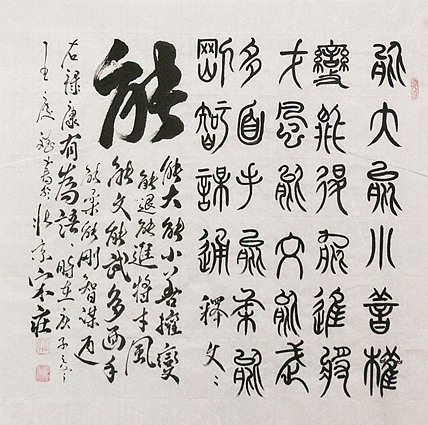 能大能小善權
變能退能進將
才風能文能武
多面手能柔能
剛智謀通 釋文:
能
能大能小善權變
能退能進將才風
能文能武多面手
能柔能剛智謀
右錄康有為語,時在庚子
書於北京宋莊